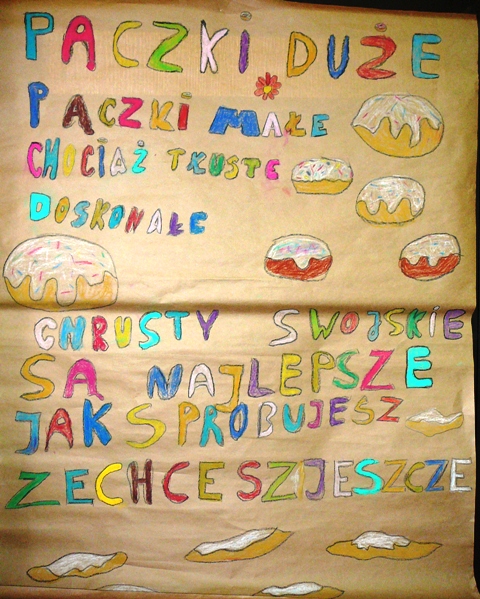 PĄCZKI DUŻE
PĄCZKI MAŁE
CHOCIAŻ TŁUSTE
DOSKONAŁE
CHRUSTY SWOJSKIE
SĄ NAJLEPSZE
JAK SPROBUJESZ
ZECHCESZ JESZCZE